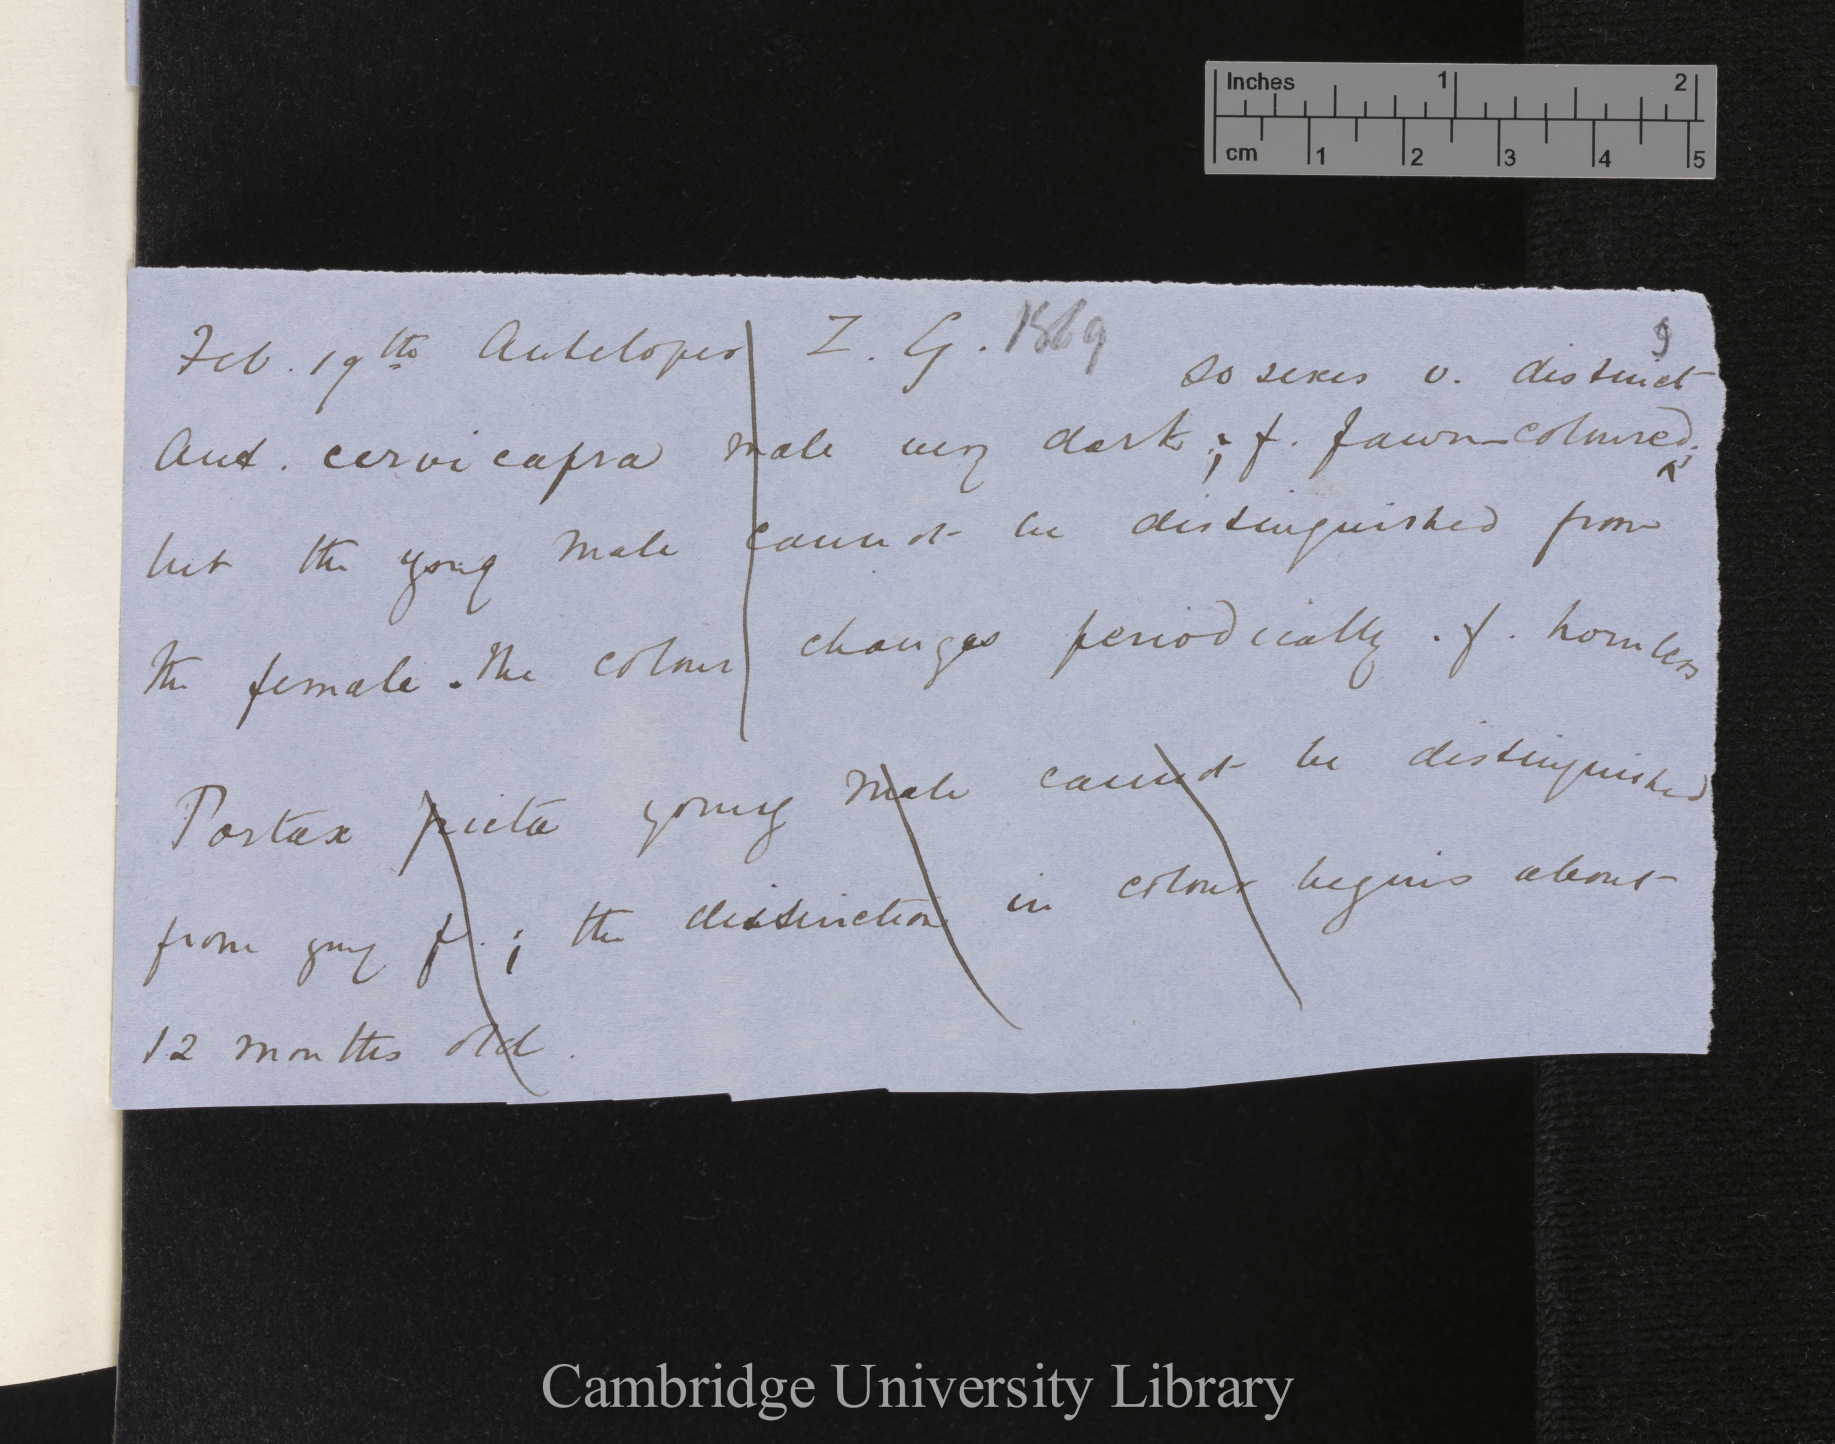 Inches 1 2
cm 1 2 3 4 5
9
Feb. 19th Antelopes Z. G. 1869
so sexes v. distinct
Ant. cervicapra male very dark; f. fawn-coloured,
but the young male cannot be distinguished from
the female. The colour changes periodically. f. hornless
Portax picta young male cannot be distinguished
from young f.; the distinction in colour begins about
12 months old.
Cambridge University Library